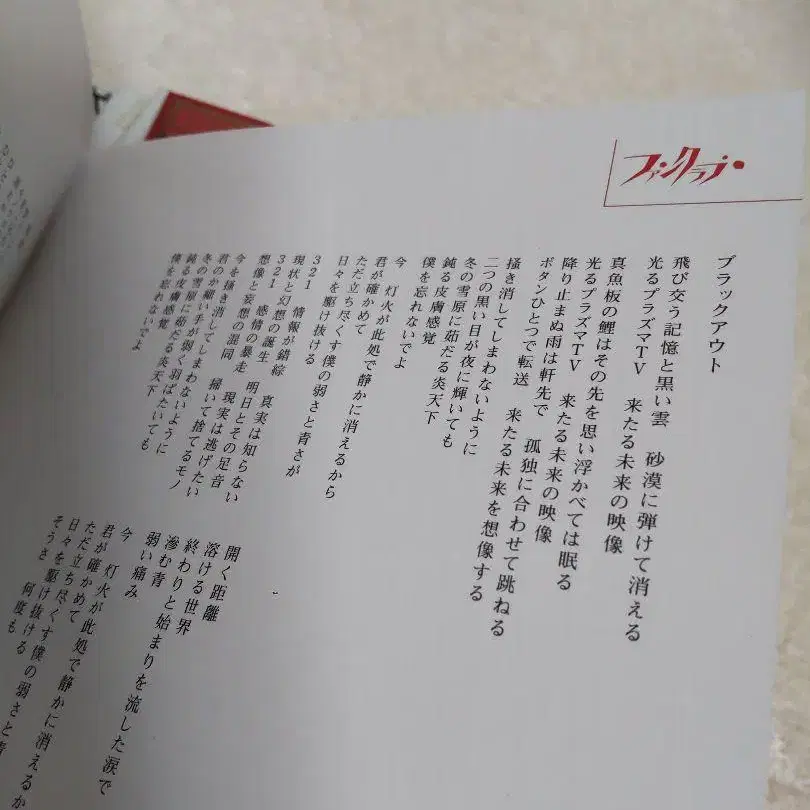 ファンクラブ
ブラックアウト
飛び交う記憶と黒い雲 砂漠に弾けて消える
光るプラズマTV 来たる未来の映像
真魚板の鯉はその先を思い浮かべては眠る
光るプラズマTV 来たる未来の映像
降り止まぬ雨は軒先で 孤独に合わせて跳ねる
ボタンひとつで転送 来たる未来を想像する
掻き消してしまわないように
二つの黒い目が夜に輝いても
冬の雪原に茹だる炎天下
鈍る皮膚感覚
僕を忘れないでよ
今 灯火が此処で静かに消えるから
君が確かめて
ただ立ち尽くす僕の弱さと青さが
日々を駆け抜ける
321 情報が錯綜 真実は知らない
現状と幻想の誕生 明日とその足音
321 感情の暴走 現実は逃げたい
想像と妄想の混同 掃いて捨てるモノ
今を掻き消してしまわないように
君のか細い手が弱く羽ばたいても
冬の雪原に茹だる炎天下
鈍る皮膚感覚
僕を忘れないでよ
開く距離
溶ける世界
終わりと始まりを流した涙で
滲む青
弱い痛み
今 灯火が此処で静かに消えるか
君が確かめて
ただ立ち尽くす僕の弱さと青
日々を駆け抜ける
そうさ 何度も